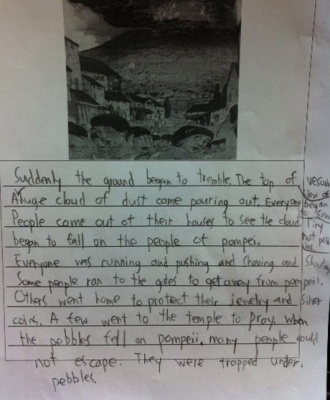 Suddenly the ground began to tremble. The top of
A huge cloud of dust came pouring out. Everyone
People came out of their houses to see the cloud
began to fall on the people of pompei.
Everyone was running and pushing and shoving and
Some people ran to the gates to get away from pompeii.
Others went home to protect their jewelry and
coins. A few went to the temple to pray. When
the pebbles fell on pompeii, many people could
not escape. They were trapped under.
pebbles.